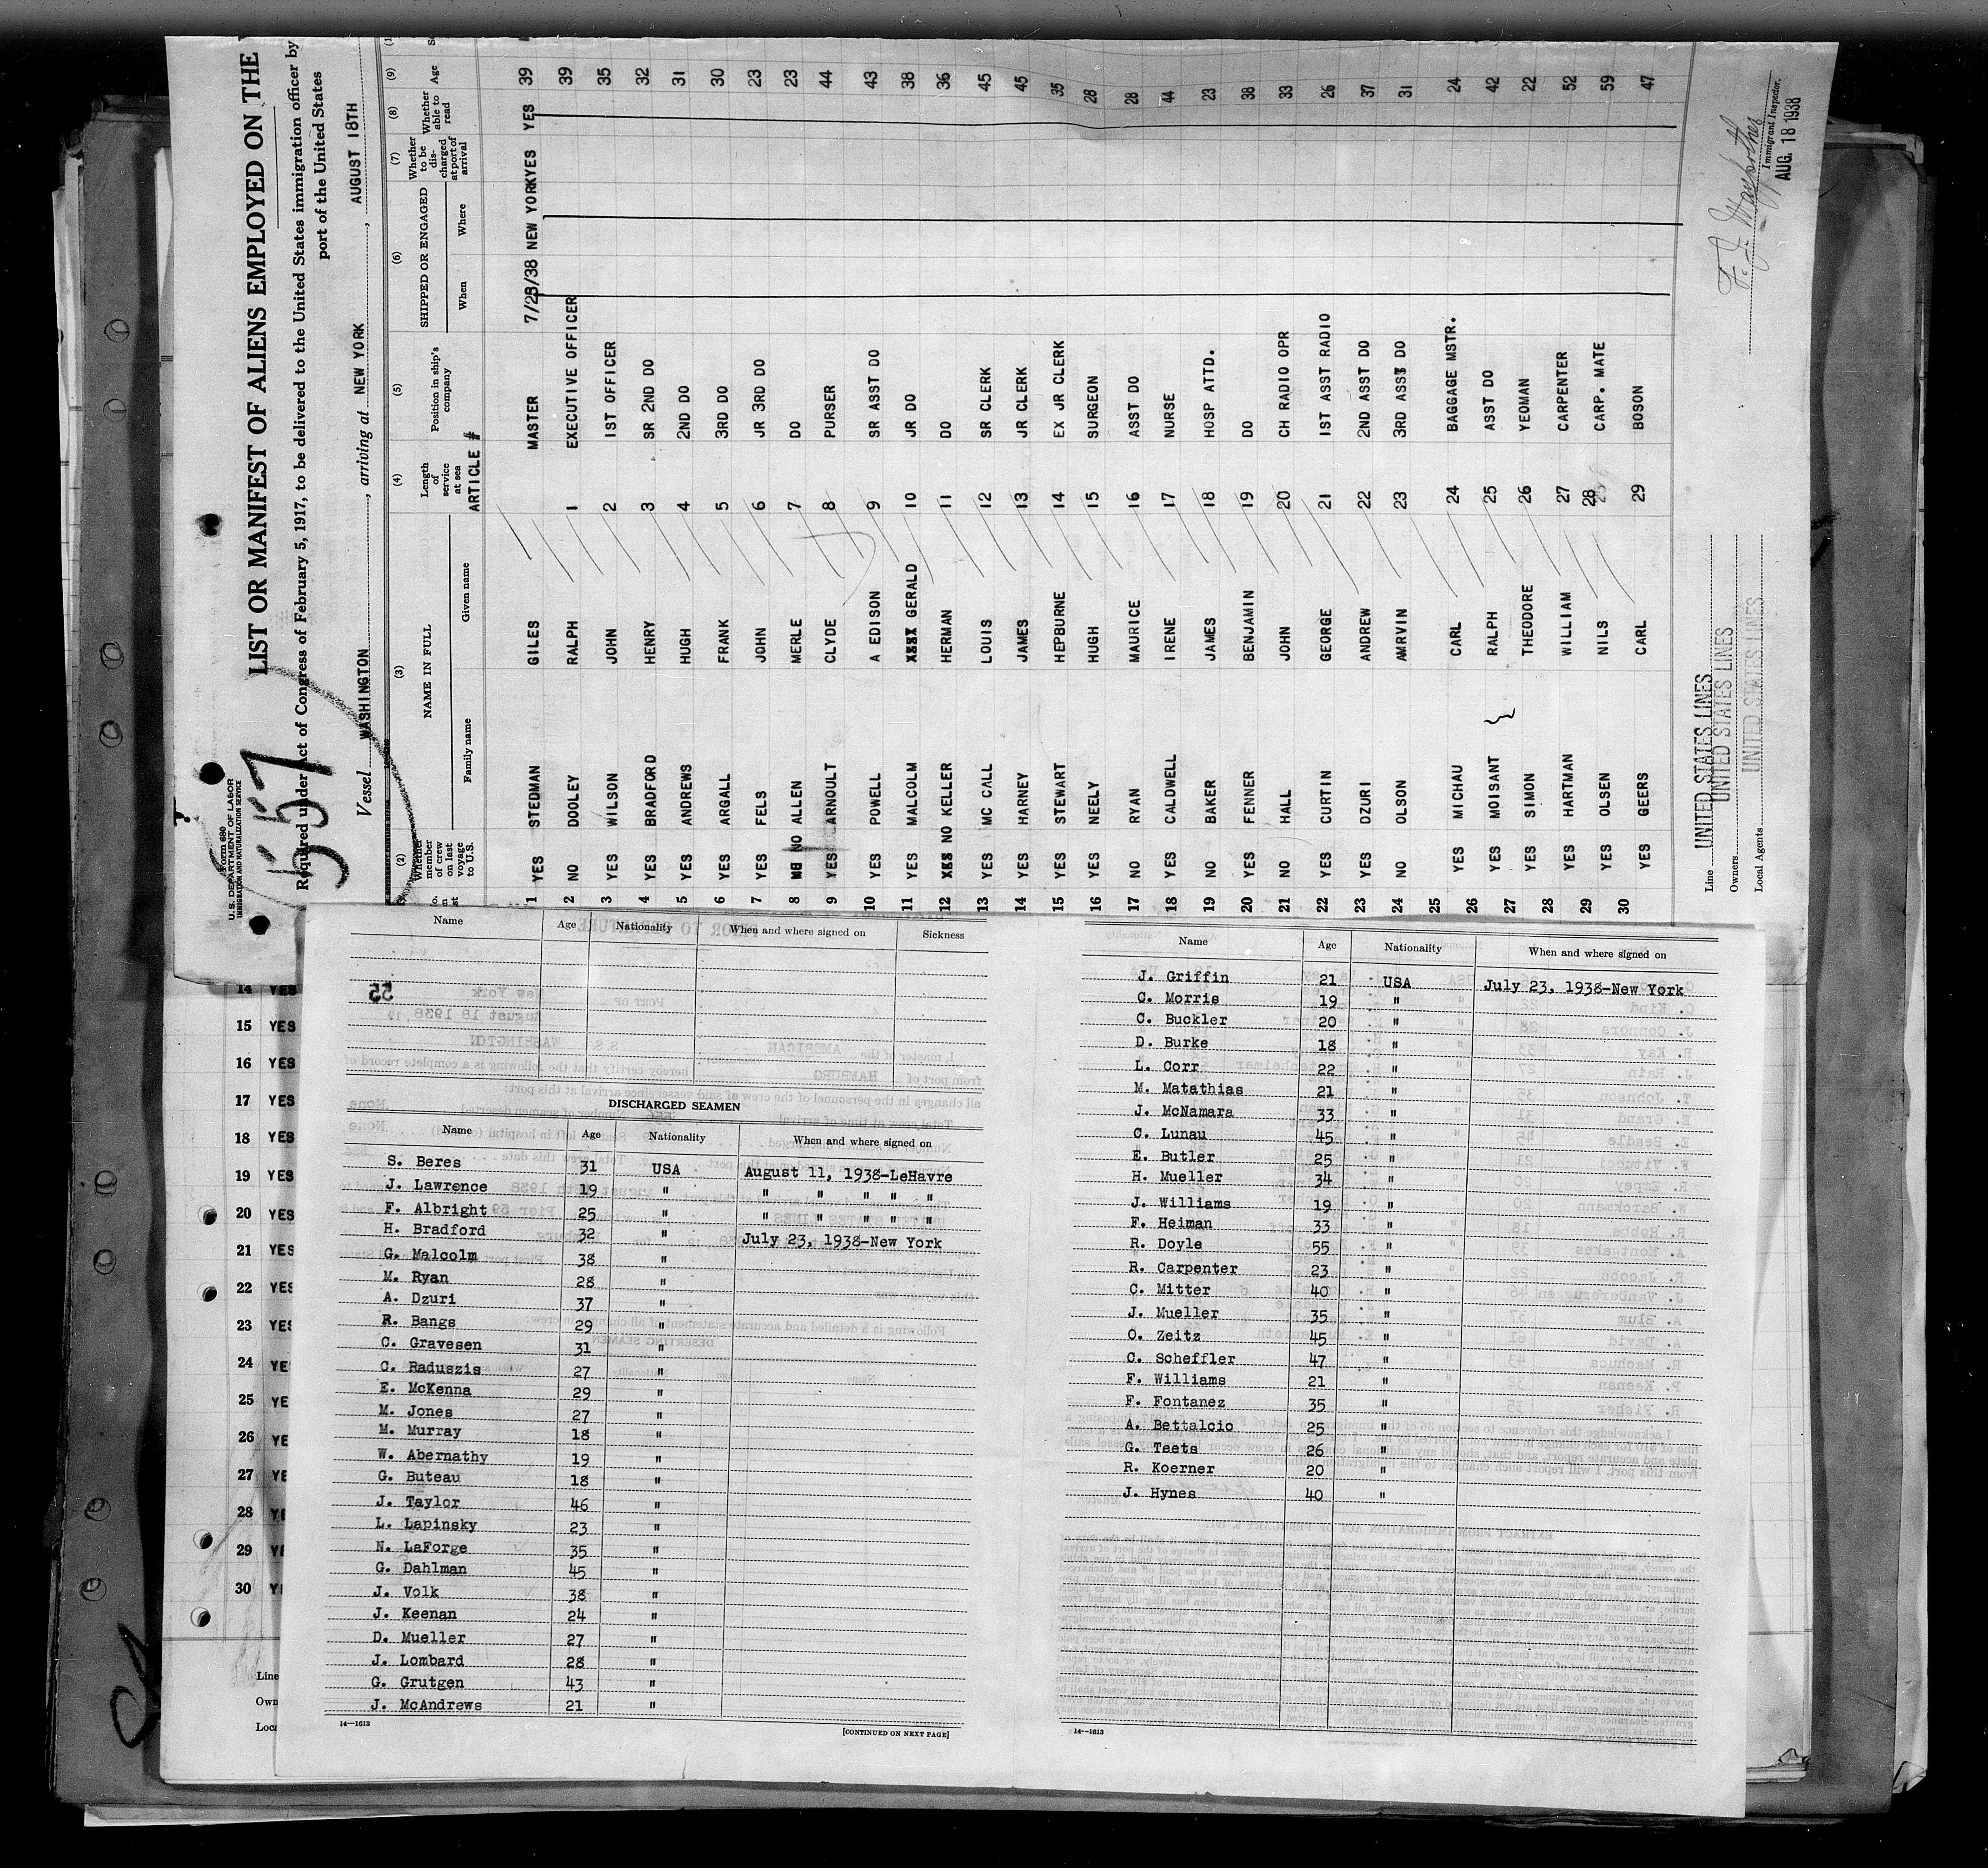 Form 680
U.S. DEPARTMENT OF LABOR
IMMIGRATION AND NATURALIZATION SERVICE
557
LIST OR MANIFEST OF ALIENS EMPLOYED ON THE
Required under Act of Congress of February 5, 1917, to be delivered to the United States immigration officer by
port of the United States
Vessel WASHINGTON, arriving at NEW YORK, AUGUST 18TH
(2) (3) (4) (5) (6) (7) (8) (9)
Whether member of crew on last voyage to U.S. NAME IN FULL Family name Given name Length of service at sea Position in ship's company SHIPPED OR ENGAGED When Where Whether to be discharged at port of arrival Whether able to read Age
ARTICLE #
1 YES STEDMAN GILES MASTER 7/23/38 NEW YORK YES YES 39
2 NO DOOLEY RALPH 1 EXECUTIVE OFFICER 39
3 YES WILSON JOHN 2 1ST OFFICER 35
4 YES BRADFORD HENRY 3 SR 2ND DO 32
5 YES ANDREWS HUGH 4 2ND DO 31
6 YES ARGALL FRANK 5 3RD DO 30
7 YES FELS JOHN 6 JR 3RD DO 23
8 NO ALLEN MERLE 7 DO 23
9 YES ARNOULT CLYDE 8 PURSER 44
10 YES POWELL A EDISON 9 SR ASST DO 43
11 YES MALCOLM GERALD 10 JR DO 38
12 NO KELLER HERMAN 11 DO 36
13 YES MC CALL LOUIS 12 SR CLERK 45
14 YES HARNEY JAMES 13 JR CLERK 45
15 YES STEWART HEPBURNE 14 EX JR CLERK 35
16 YES NEELY HUGH 15 SURGEON 28
17 NO RYAN MAURICE 16 ASST DO 28
18 YES CALDWELL IRENE 17 NURSE 44
19 NO BAKER JAMES 18 HOSP ATTD. 23
20 YES FENNER BENJAMIN 19 DO 38
21 NO HALL JOHN 20 CH RADIO OPR 33
22 YES CURTIN GEORGE 21 1ST ASST RADIO 26
23 YES DZURI ANDREW 22 2ND ASST DO 37
24 NO OLSON AMRVIN 23 3RD ASST DO 31
25 YES MICHAU CARL 24 BAGGAGE MSTR. 24
26 YES MOISANT RALPH 25 ASST DO 42
27 YES SIMON THEODORE 26 YEOMAN 22
28 YES HARTMAN WILLIAM 27 CARPENTER 52
29 YES OLSEN NILS 28 CARP. MATE 59
30 YES GEERS CARL 29 BOSON 47
Line UNITED STATES LINES
Owners UNITED STATES LINES
Local Agents UNITED STATES LINES
Immigrant Inspector.
AUG. 18 1938
14 YES
15 YES
16 YES
17 YES
18 YES
19 YES
20 YES
21 YES
22 YES
23 YES
24 YE
25 YE
26 YE
27 YE
28 YE
29 YE
30 YE
Line
Own
Loca
Name Age Nationality When and where signed on Sickness
DISCHARGED SEAMEN
Name Age Nationality When and where signed on
S. Beres 31 USA August 11, 1938-LeHavre
J. Lawrence 19 " " " " " "
F. Albright 25 " " " " " "
H. Bradford 32 " July 23, 1938-New York
G. Malcolm 38 "
M. Ryan 28 "
A. Dzuri 37 "
R. Bangs 29 "
C. Gravesen 31 "
C. Raduszis 27 "
E. McKenna 29 "
M. Jones 27 "
M. Murray 18 "
W. Abernathy 19 "
G. Buteau 18 "
J. Taylor 46 "
L. Lapinsky 23 "
N. LaForge 35 "
G. Dahlman 45 "
J. Volk 38 "
J. Keenan 24 "
D. Mueller 27 "
J. Lombard 28 "
G. Grutgen 43 "
J. McAndrews 21 "
14—1613 [CONTINUED ON NEXT PAGE]
Name Age Nationality When and where signed on
J. Griffin 21 USA July 23, 1938-New York
C. Morris 19 "
C. Buckler 20 "
D. Burke 18 "
L. Corr 22 "
M. Matathias 21 "
J. McNamara 33 "
C. Lunau 45 "
E. Butler 25 "
H. Mueller 34 "
J. Williams 19 "
F. Heiman 33 "
R. Doyle 55 "
R. Carpenter 23 "
C. Mitter 40 "
J. Mueller 35 "
O. Zeitz 45 "
C. Scheffler 47 "
F. Williams 21 "
F. Fontanez 35 "
A. Bettalcio 25 "
G. Teets 26 "
R. Koerner 20 "
J. Hynes 40 "
14—1613